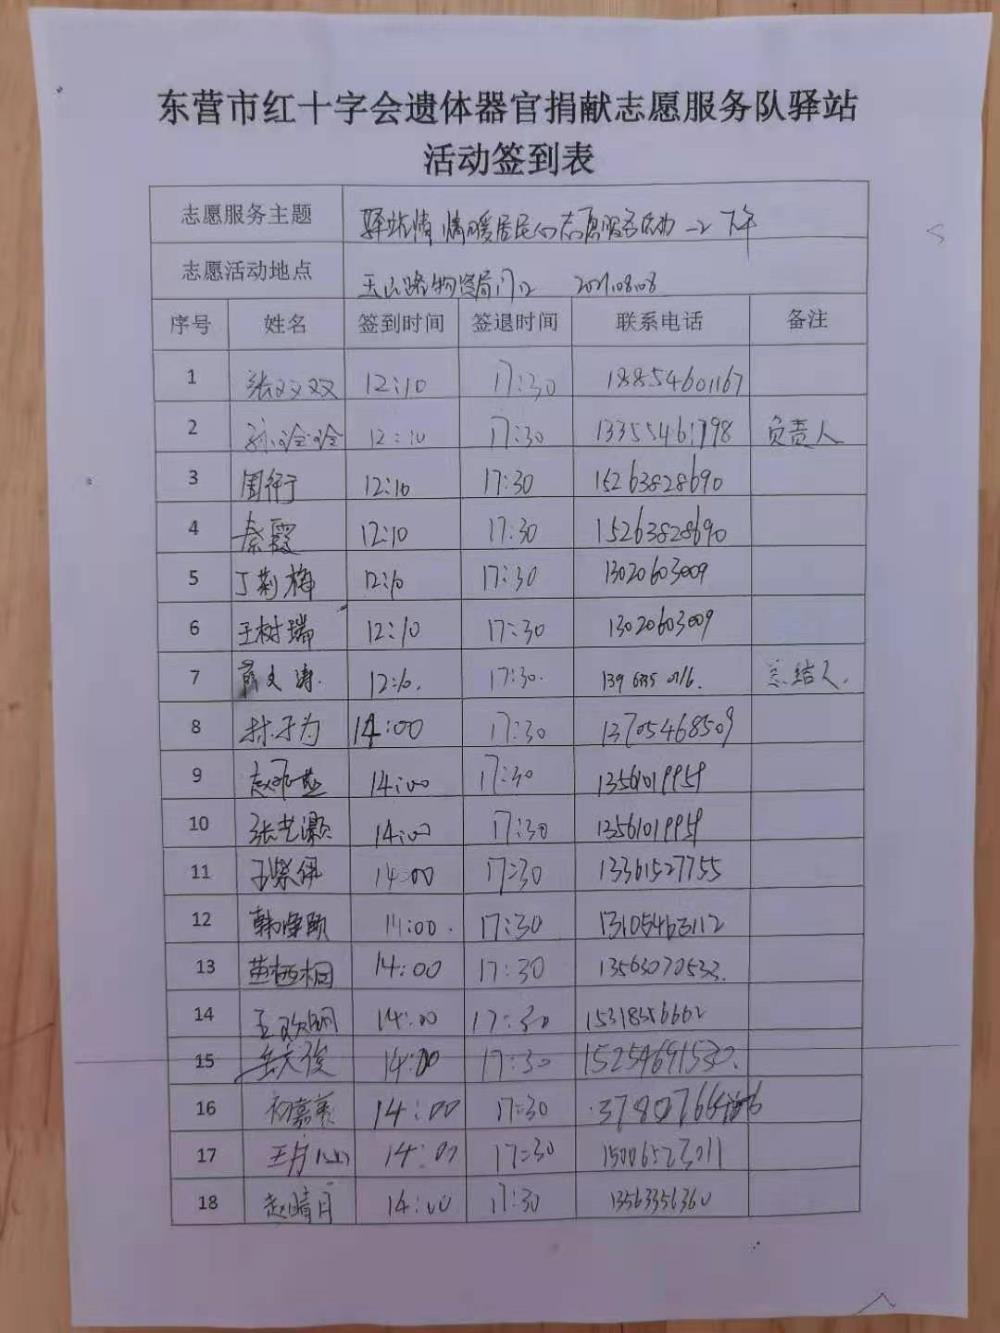 东营市红十字会遗体器官捐献志愿服务队驿站
活动签到表
志愿服务主题 驿站情 情暖居民的志愿服务活动 一2 下午
志愿活动地点 玉山路物资局门口 2021.08.08
序号 姓名 签到时间 签退时间 联系电话 备注
1 张双双 12:10 17:30 18854601167
2 孙玲玲 12:10 17:30 13355461798 负责人
3 周衍 12:10 17:30 15263828690
4 秦霞 12:10 17:30 15263828690
5 丁莉梅 12:10 17:30 13020603009
6 王树瑞 12:10 17:30 13020603009
7 文涛. 12:10. 17:30. 总结人.
8 林子为 14:00 17:30 13705468509
9 14:00 17:30 13561019959
10 张艺灏 14:00 17:30 13561019959
11 王紫伊 14:00 17:30 13361527755
12 韩 14:00. 17:30 13105463112
13 黄栖桐 14:00 17:30 13563070533.
14 王欢 14:00 17:30 15318356662
15 14:00 17:30 15254691530.
16 初嘉 14:00 17:30
17 王 14:00 17:30 15006523011
18 赵晴月 14:00 17:30 13563356360